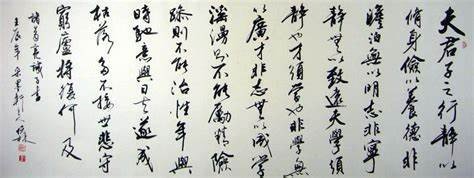 夫君子之行静以
脩身儉以養德非
澹泊無以明志非寧
静無以致遠夫學須
静也才須學也非學無
以廣才非志無以成學
慢則不能勵精險
躁則不能治性年與
時馳意與日去遂成
枯落多不接世悲守
窮廬將復何及
諸葛亮誡子書
壬辰年